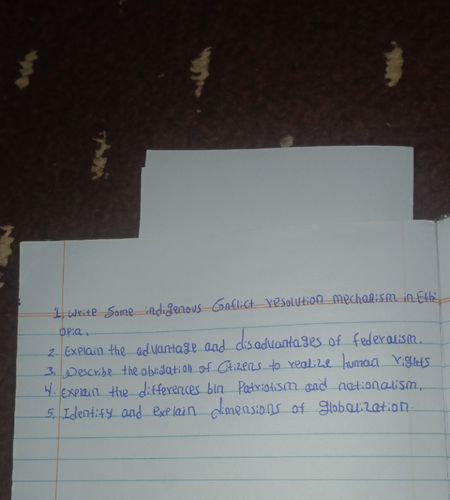 1. Write Some indigenous Conflict resolution mechanism in Ethi
opia.
2. Explain the advantage and disadvantages of federalism.
3. Describe the obligation of Citizens to realize human rights
4. Explain the differences b/n Patriotism and nationalism.
5. Identify and explain dimensions of globalization